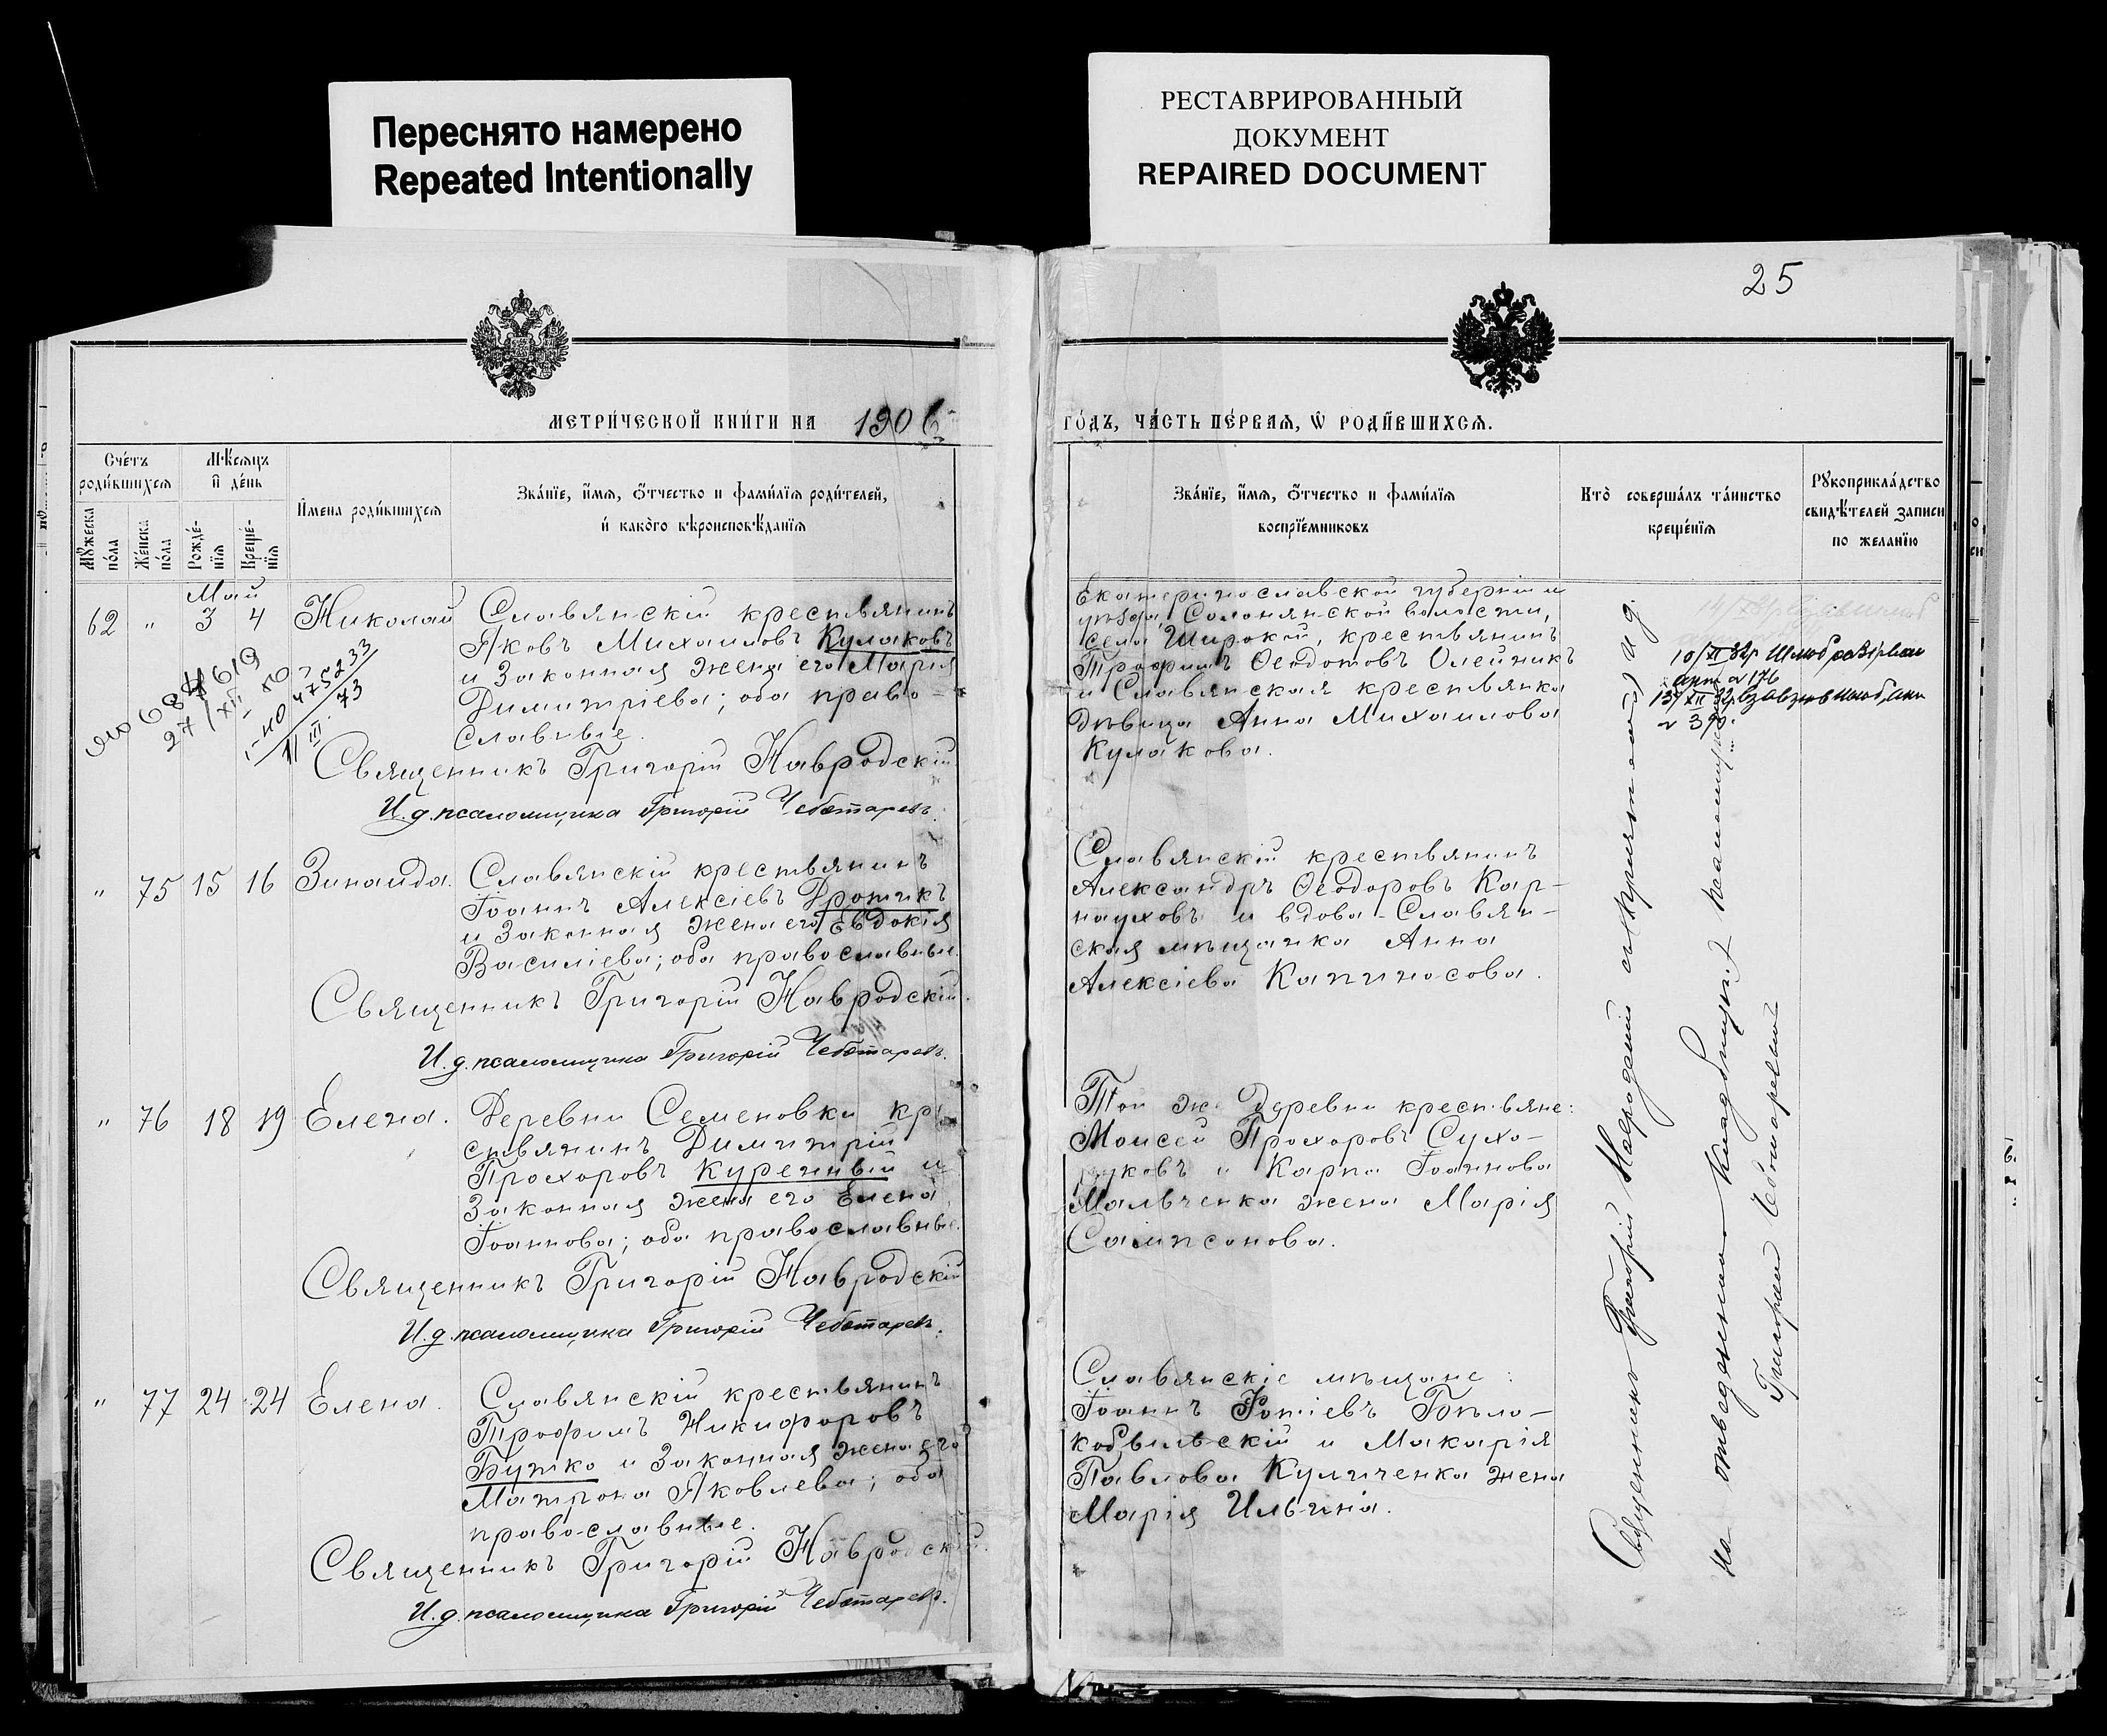 Переснято намерено
Repeated Intentionally
РЕСТАВРИРОВАННЫЙ
ДОКУМЕНТ
REPAIRED DOCUMENT
25
МЕТРИ́ЧЕСКОЙ КНИ́ГИ НА 1906
ГО́ДЪ, ЧА́СТЬ ПЕ́РВАЯ, Ѡ РОДИ́ВШИХСЯ.
Сче́тъ роди́вшихся
Мѣ́сяцъ и де́нь
Мꙋ́жеска по́ла
Же́нска по́ла
Рожде́-нїя
Креще́-нїя
И́мена роди́вшихся
Зва́нїе, и́мя, ѻ́тчество и фами́лїя роди́телей,
и како́го вѣроисповѣ́данїя
Зва́нїе, и́мя, ѻ́тчество и фами́лїя
воспрїе́мниковъ
Кто̀ соверша́лъ та́инство
креще́нїя
Рꙋкоприкла́дство
свидѣ́телей записи
по жела́нїю
Май
62 " 3 4 Николай
Славянскій крестьянинъ
Яковъ Михаиловъ Кулаковъ
и законная жена его Марія
Димитріева; оба право-
славные.
Священникъ Григорій Навродскій
И.д. псаломщика Григорій Чеботаревъ.
27/XII
475233
11/III. 73
Екатеринославской губерніи и
уѣзда, Солонянской волости,
села Широкой, крестьянинъ
Трофимъ Ѳеодотовъ Олейникъ
и Славянская крестьянка
дѣвица Анна Михаилова
Кулакова.
" 75 15 16 Зинаида.
Славянскій крестьянинъ
Іоаннъ Алексіевъ Дротикъ
и законная жена его Евдокія
Василіева; оба православные.
Священникъ Григорій Навродскій.
И.д. псаломщика Григорій Чеботаревъ.
Славянскій крестьянинъ
Александръ Ѳеодоровъ Кар-
науховъ и вдова-Славян-
ская мѣщанка Анна
Алексіева Капиносова.
" 76 18 19 Елена.
Деревни Семеновки кре
стьянинъ Димитрій
Прохоровъ Куречный и
законная жена его Елена
Іоаннова; оба православные.
Священникъ Григорій Навродскій
И.д. псаломщика Григорій Чеботаревъ.
Той же деревни крестьяне:
Моисей Прохоровъ Сухо-
руковъ и Карпа Іоаннова
Мальченка жена Марія
Сампсонова.
" 77 24 24 Елена.
Славянскій крестьянинъ
Трофимъ Никифоровъ
Бутко и законная жена его
Матрона Яковлева; оба
православные.
Священникъ Григорій Навродскій.
И.д. псаломщика Григорій Чеботаревъ.
Славянскіе мѣщане:
Іоаннъ Фотіевъ Бѣло-
кобыльскій и Макарія
Павлова Куличенка жена
Марія Ильина.
Священникъ Григорій Навродскій
Григорій Чеботаревъ